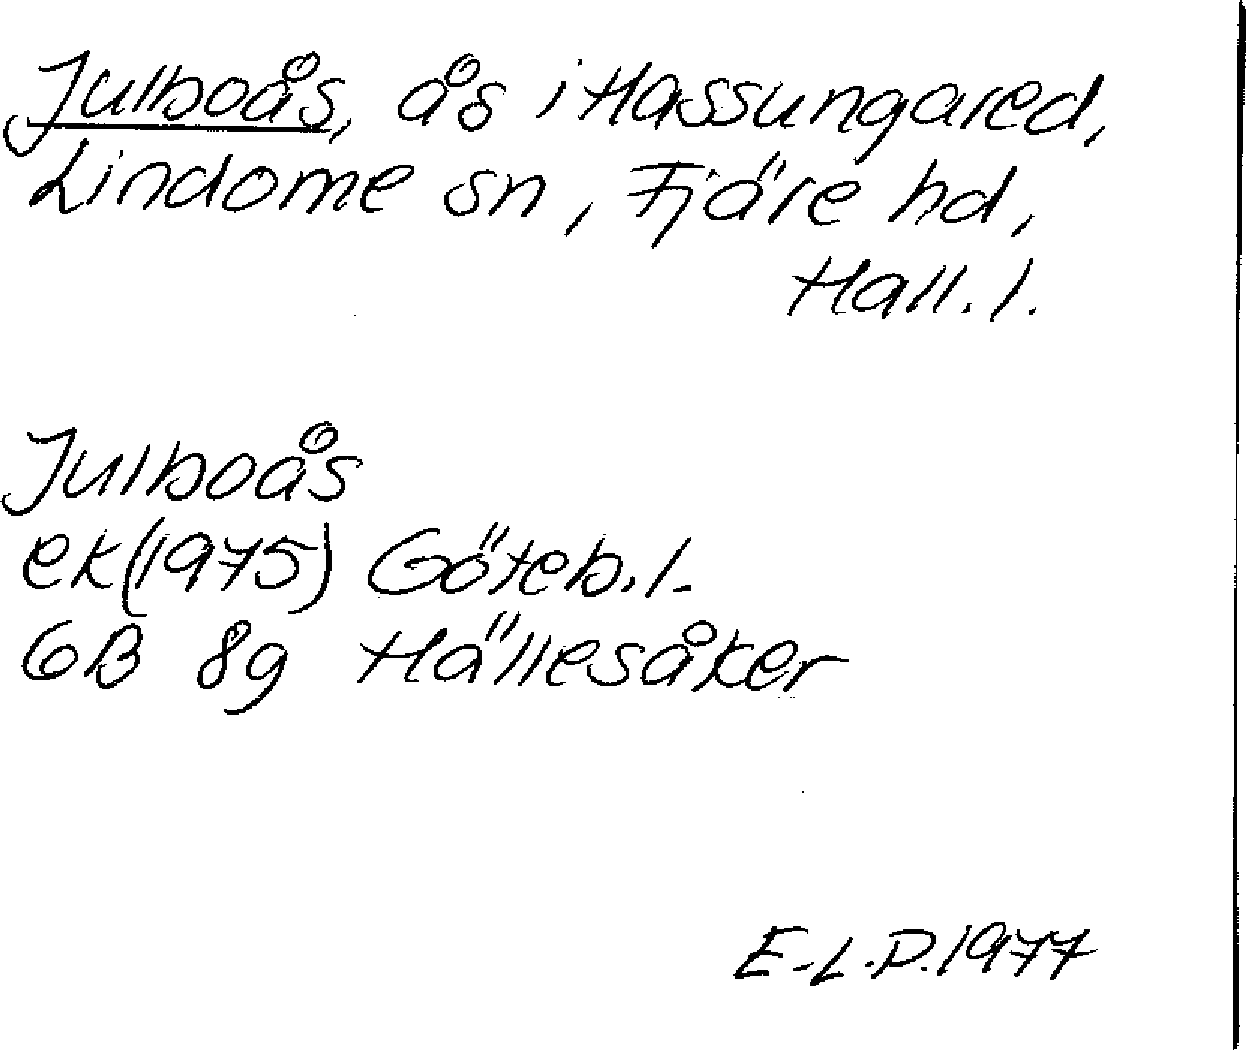 Julboås, ås i Hassungared,
Lindome sn, Fjäre hd,
Hall. l.
Julboås
ek (1975) Göteb. l.
6B 8g Hällesåker
E-L.P. 1977